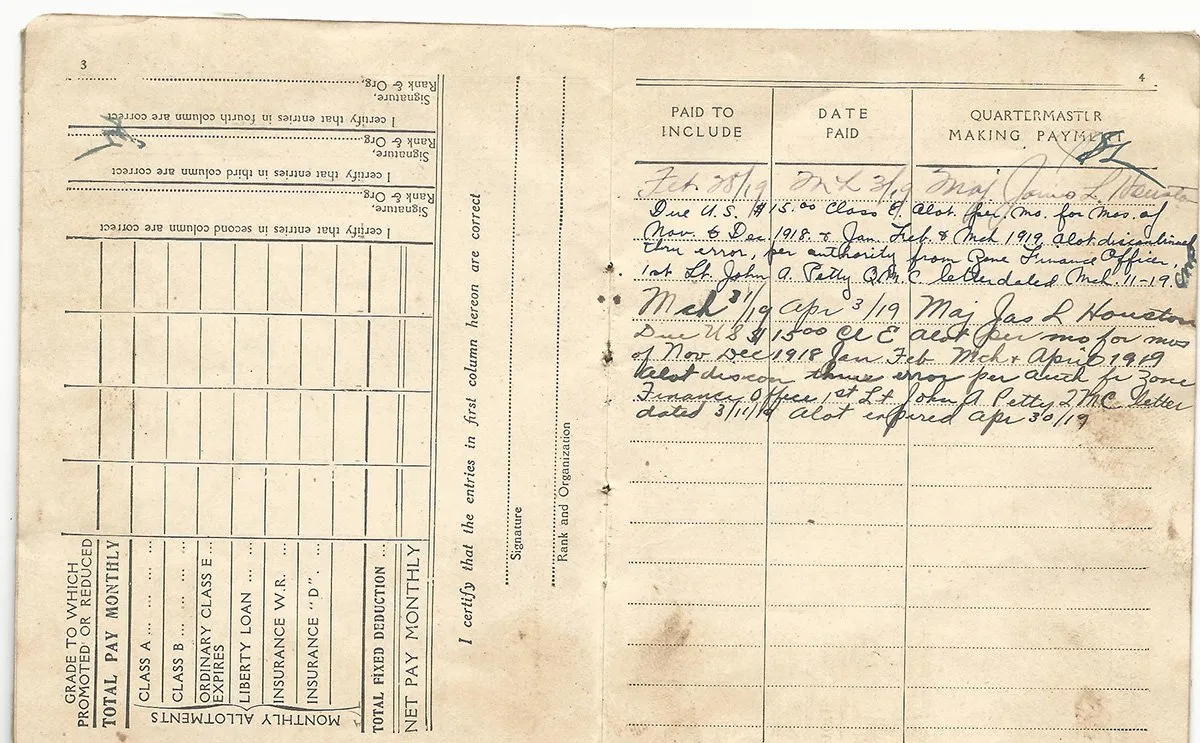 3
I certify that entries in fourth column are correct
Signature,
Rank & Org.
I certify that entries in third column are correct
Signature,
Rank & Org.
I certify that entries in second column are correct
Signature,
Rank & Org.
GRADE TO WHICH
PROMOTED OR REDUCED
TOTAL PAY MONTHLY
MONTHLY ALLOTMENTS
CLASS A
CLASS B
ORDINARY CLASS E
EXPIRES
LIBERTY LOAN
INSURANCE W.R.
INSURANCE "D".
TOTAL FIXED DEDUCTION
NET PAY MONTHLY
I certify that the entries in first column hereon are correct
Signature
Rank and Organization
4
PAID TO INCLUDE
DATE PAID
QUARTERMASTER MAKING PAYMENT
Feb 28/19 Mch 3/19 Maj James L. Houston
Due U.S. $15.00 Class E. Alot. per. mo. for mos. of
Nov. & Dec 1918. & Jan. Feb. & Mch 1919. Alot. discontinued
thru error, per authority from Zone Finance Officer,
1st Lt. John A. Petty Q.M.C. letter dated Mch. 11-19.
Mch 31/19 Apr 3/19 Maj Jas L Houston
Due US $15.00 Cl E alot per mo for mos
of Nov Dec 1918 Jan Feb Mch & April 1919
Alot discon error per auth fr Zone
Finance Office 1st Lt John A Petty QMC letter
dated 3/11/19 Alot expired Apr 30/19